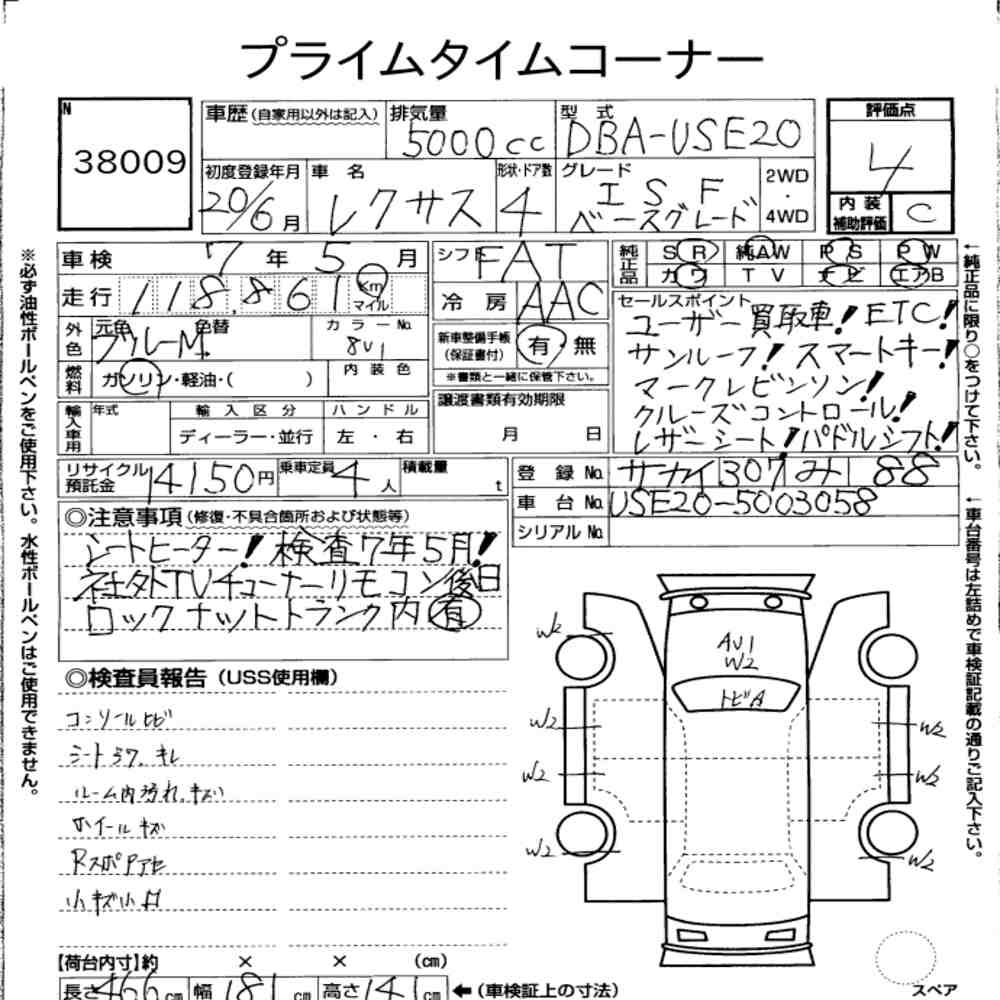 プライムタイムコーナー
N
38009
車歴(自家用以外は記入)
排気量
5000cc
型式
DBA-USE20
評価点
4
初度登録年月
20/6月
車名
レクサス
形状・ドア数
4
グレード
ISF
ベースグレード
2WD
・
4WD
内装
補助評価
C
※必ず油性ボールペンをご使用下さい。水性ボールペンはご使用できません。
車検 7年5月
走行 118,861 Km
マイル
外色
元色
ブルーM
色替
カラーNo.
8U1
燃料
ガソリン・軽油・( )
内装色
輸入車用
年式
輸入区分
ハンドル
ディーラー・並行
左・右
シフト FAT
冷房 AAC
新車整備手帳
(保証書付)
有・無
※書類と一緒に保管下さい。
譲渡書類有効期限
月 日
純正品
SR 純AW PS PW
カワ TV ナビ エアB
セールスポイント
ユーザー買取車!ETC!
サンルーフ!スマートキー!
マークレビンソン!
クルーズコントロール!
レザーシート!パドルシフト!
←純正品に限り○をつけて下さい。
リサイクル
預託金
14150円
乗車定員
4人
積載量
t
登録No.
サカイ307み 88
車台No.
USE20-5003058
シリアルNo.
←車台番号は左詰めで車検証記載の通りご記入下さい。
◎注意事項(修復・不具合箇所および状態等)
シートヒーター!検査7年5月!
社外TVチューナーリモコン後日
ロックナットトランク内有
◎検査員報告(USS使用欄)
コンソールヒビ
シートスワ、キレ
ルーム内汚れ、キズ
ホイールキズ
RスポPアセ
小キズ小凹
AU1
W2
トビA
W2
W2
W2
W2
W2
W2
W2
【荷台内寸】約 × × (cm)
長さ466cm 幅181cm 高さ141cm ←(車検証上の寸法)
スペア